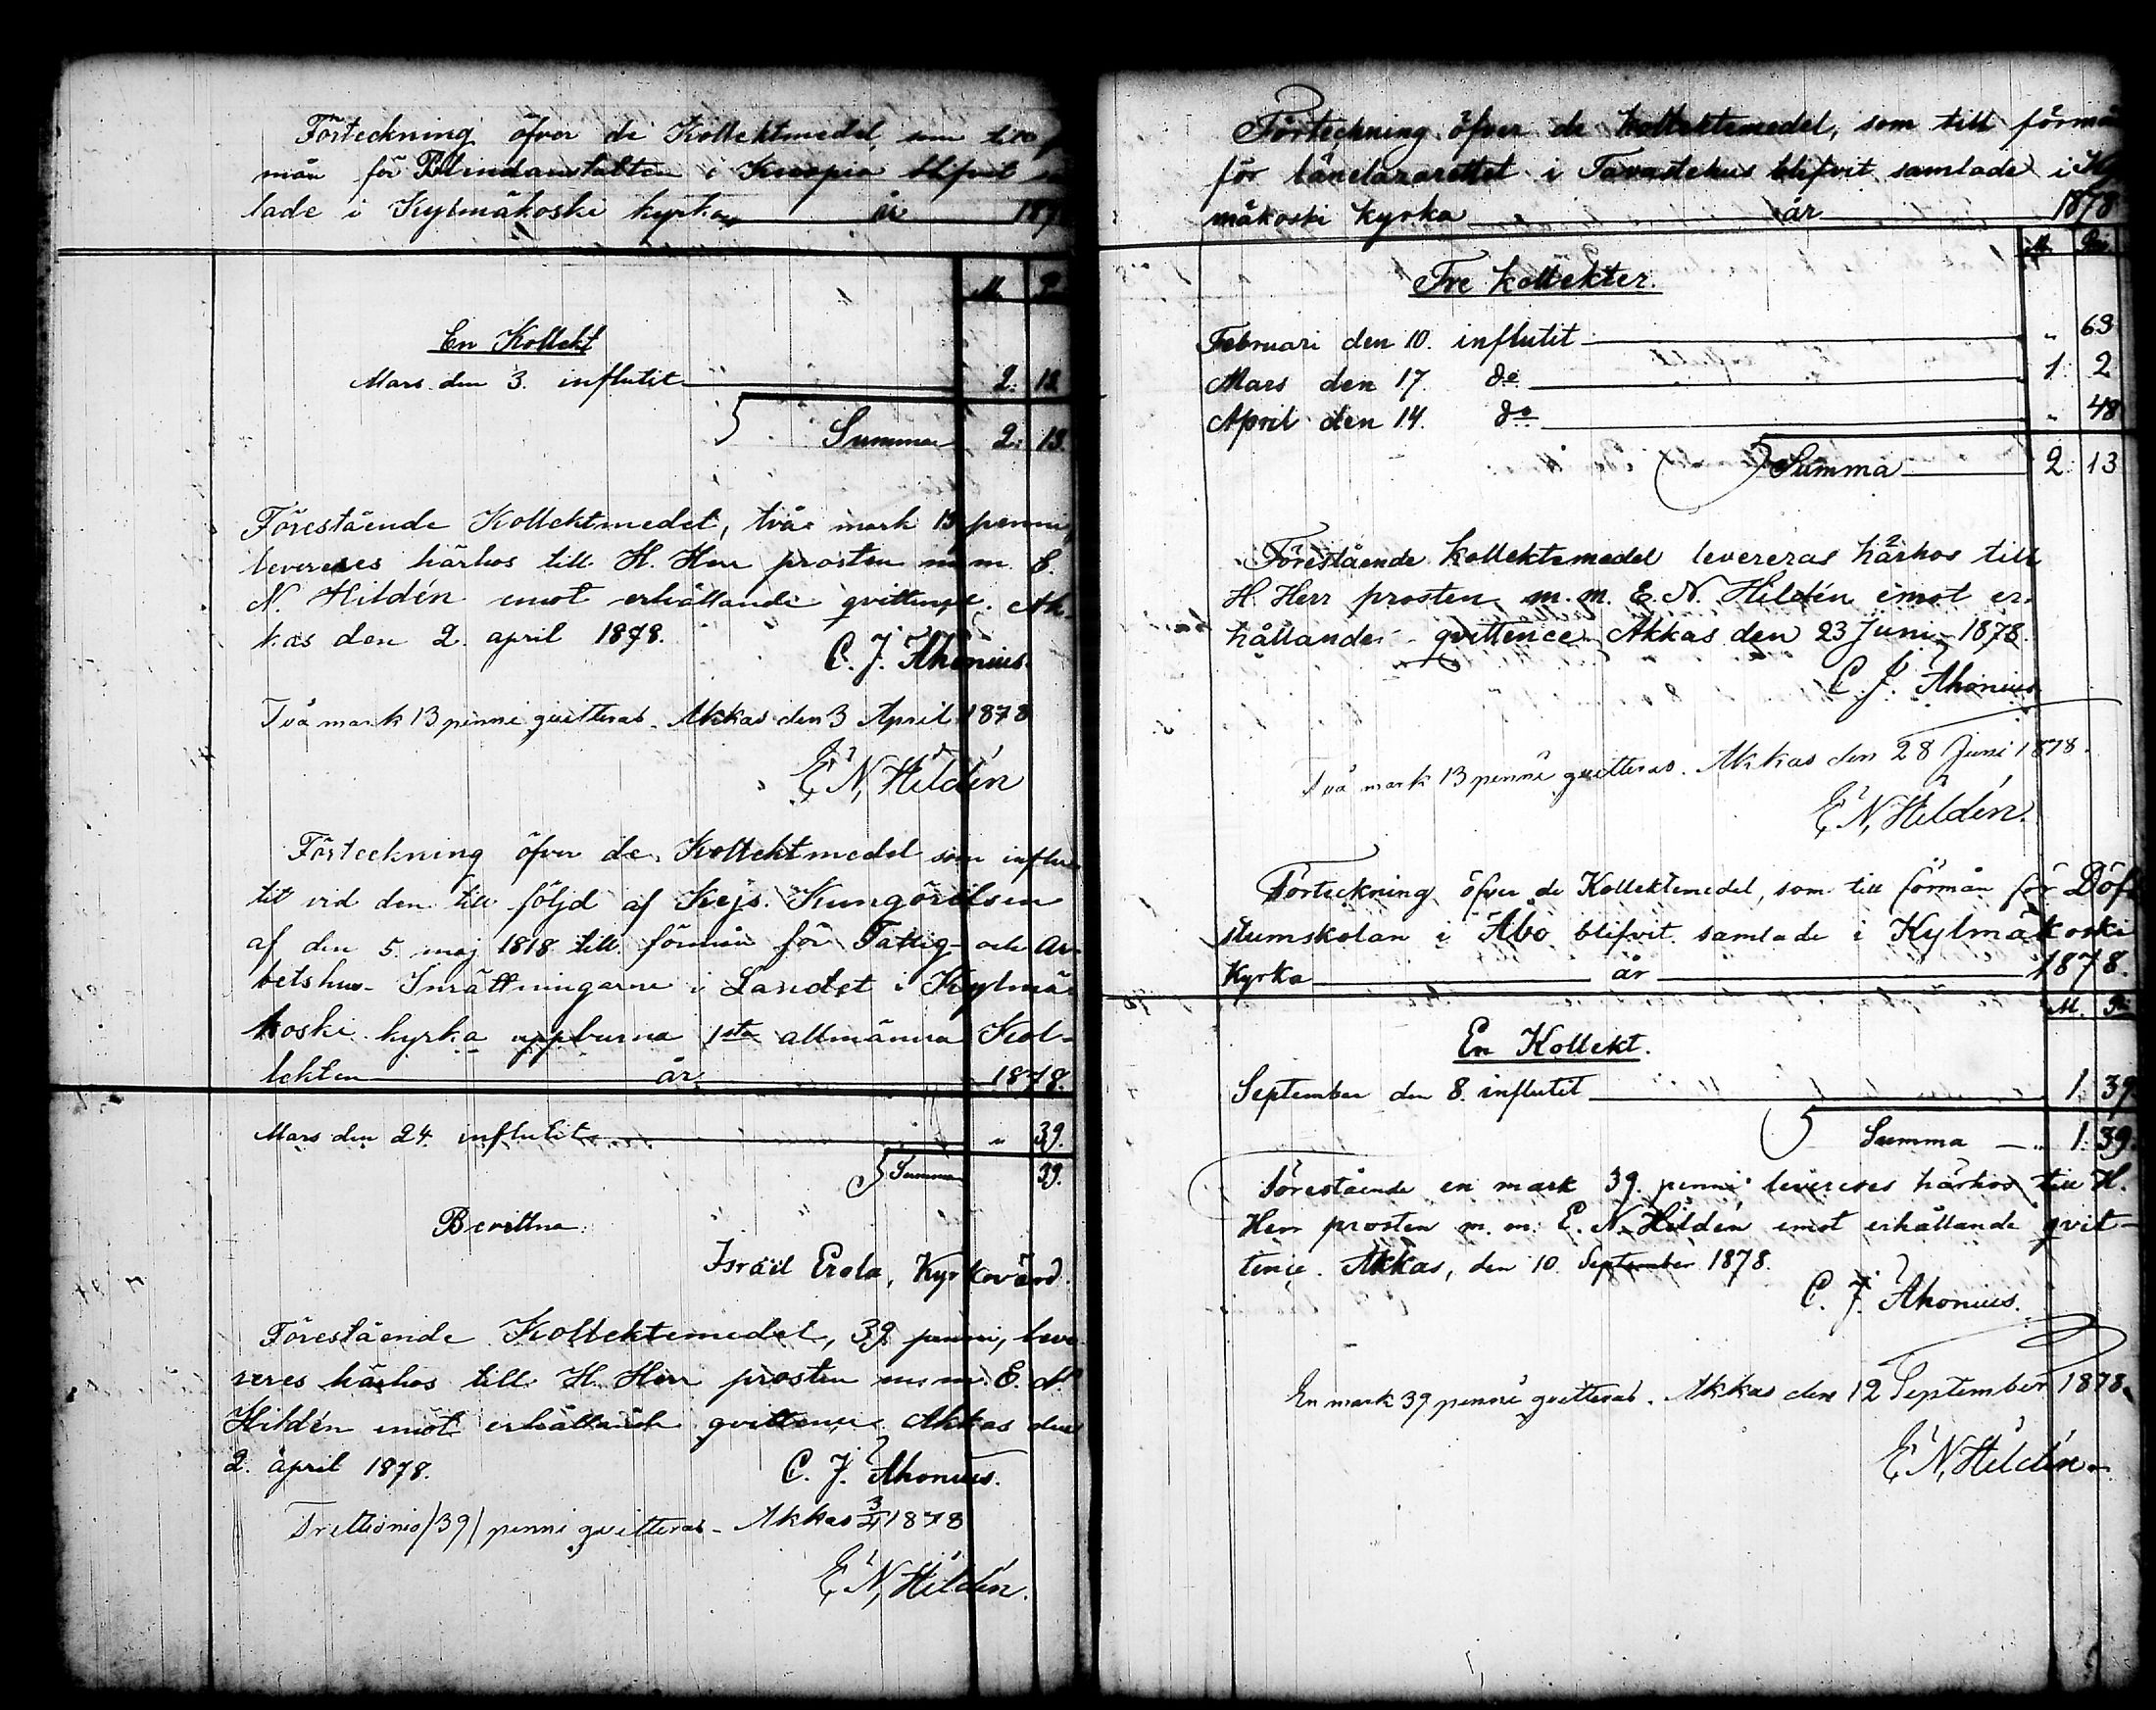 Förteckning öfver de Kollektmedel, som till
mån för Blindanstalten i Kuopio blifvit
lade i Kylmäkoski kyrka år 187
M. P
En Kollekt
Mars den 3. influtit 2. 13
Summa 2. 13.
Förestående Kollektmedel, två mark 13 penni,
levereres härhos till H. Herr prosten m m. E.
N. Hildén emot erhållande qvittence. Ak-
kas den 2. april 1878.
C. J. Ahonius.
Två mark 13 penni qvitteras. Akkas den 3 April 1878
E. N. Hildén
Förteckning öfver de Kollektmedel som influ-
tit vid den till följd af Kejs. Kungörelsen
af den 5. maj 1818 till förmån för Fattig- och Ar-
betshus- Inrättningarne i Landet i Kylmä-
koski kyrka uppburna 1sta allmänna Kol-
lekten år 1878.
Mars den 24. influtit „ 39.
Summa 39.
Bevittna:
Israël Erola, Kyrkovärd.
Förestående Kollektemedel, 39 penni, leve-
reres härhos till H. Herr prosten m. m. E. N.
Hildén emot erhållande qvittence. Akkas den
2. april 1878.
C. J. Ahonius.
Trettionio /39/ penni qvitteras. Akkas 3/4 1878
E. N. Hildén.
Förteckning öfver de kollektemedel, som till förmån
för länelazarettet i Tavastehus blifvit samlade i Ky
mäkoski kyrka år 1878
M. Pi.
Tre kollekter.
Februari den 10. influtit „ 63
Mars den 17. do 1. 2
April den 14. do „ 48
Summa 2. 13
Förestående kollektemedel levereras härhos till
H. Herr prosten m. m. E. N. Hildén emot er-
hållande qvittence. Akkas den 23 Juni 1878.
C. J. Ahonius
Två mark 13 penni qvitteras. Akkas den 28 Juni 1878.
E. N. Hildén.
Förteckning öfver de Kollektemedel, som till förmån för Döf-
stumskolan i Åbo blifvit samlade i Kylmäkoski
Kyrka år 1878.
M. Pi
En Kollekt.
September den 8. influtit 1. 39
Summa 1. 39.
Förestående en mark 39. penni levereres härhos till H.
Herr prosten m. m. E. N. Hildén emot erhållande qvit-
tence. Akkas, den 10. September 1878.
C. J. Ahonius.
En mark 39 penni qvitteras. Akkas den 12 September 1878.
E. N. Hildén.